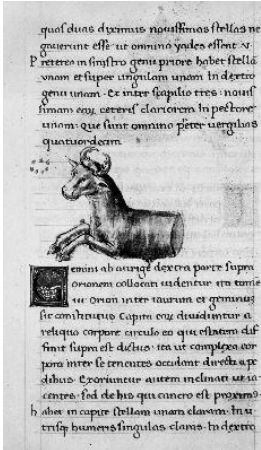 quas duas diximus nouissimas stellas ne
gauerunt esse ut omnino yades essent v.
Preterea in sinistro genu priore habet stellā
vnam et super ungulam unam. In dextro
genu unam. Ex inter scapilio tres: nouis
simam eaꝝ ceteris clariorem In pectore
unam: que sunt omnino p̄ter uergilias
quatuordecim
Gemini ab aurige dextra parte supra
Orionem collocati uidentur ita tame
ut Orion inter taurum et geminos
sit constitutus Capita eoꝝ diuiduntur a
reliquo corpore circulo eo qui estatem dif
finit supra est dictus: ita ut complexa cor
pora inter se tenentes occidant directi a pe
dibus Exoriuntur autem inclinati ut ia
centes: sed de his qui cancro est proximꝰ
habet in capite stellam unam claram. In u
trisqꝫ humeris singulas claras. In dextro